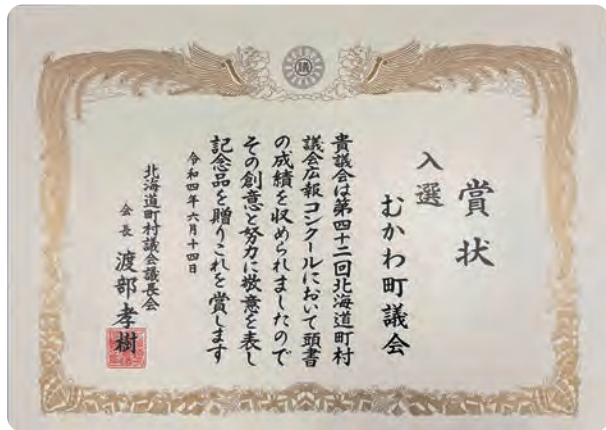 議
賞状
入選
むかわ町議会
貴議会は第四十二回北海道町村
議会広報コンクールにおいて頭書
の成績を収められましたので
その創意と努力に敬意を表し
記念品を贈りこれを賞します
令和四年六月十四日
北海道町村議会議長会
会長 渡部孝樹